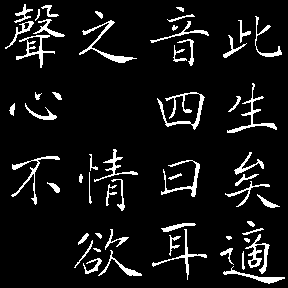 此生矣適
音四曰耳
之 情欲
聲心不